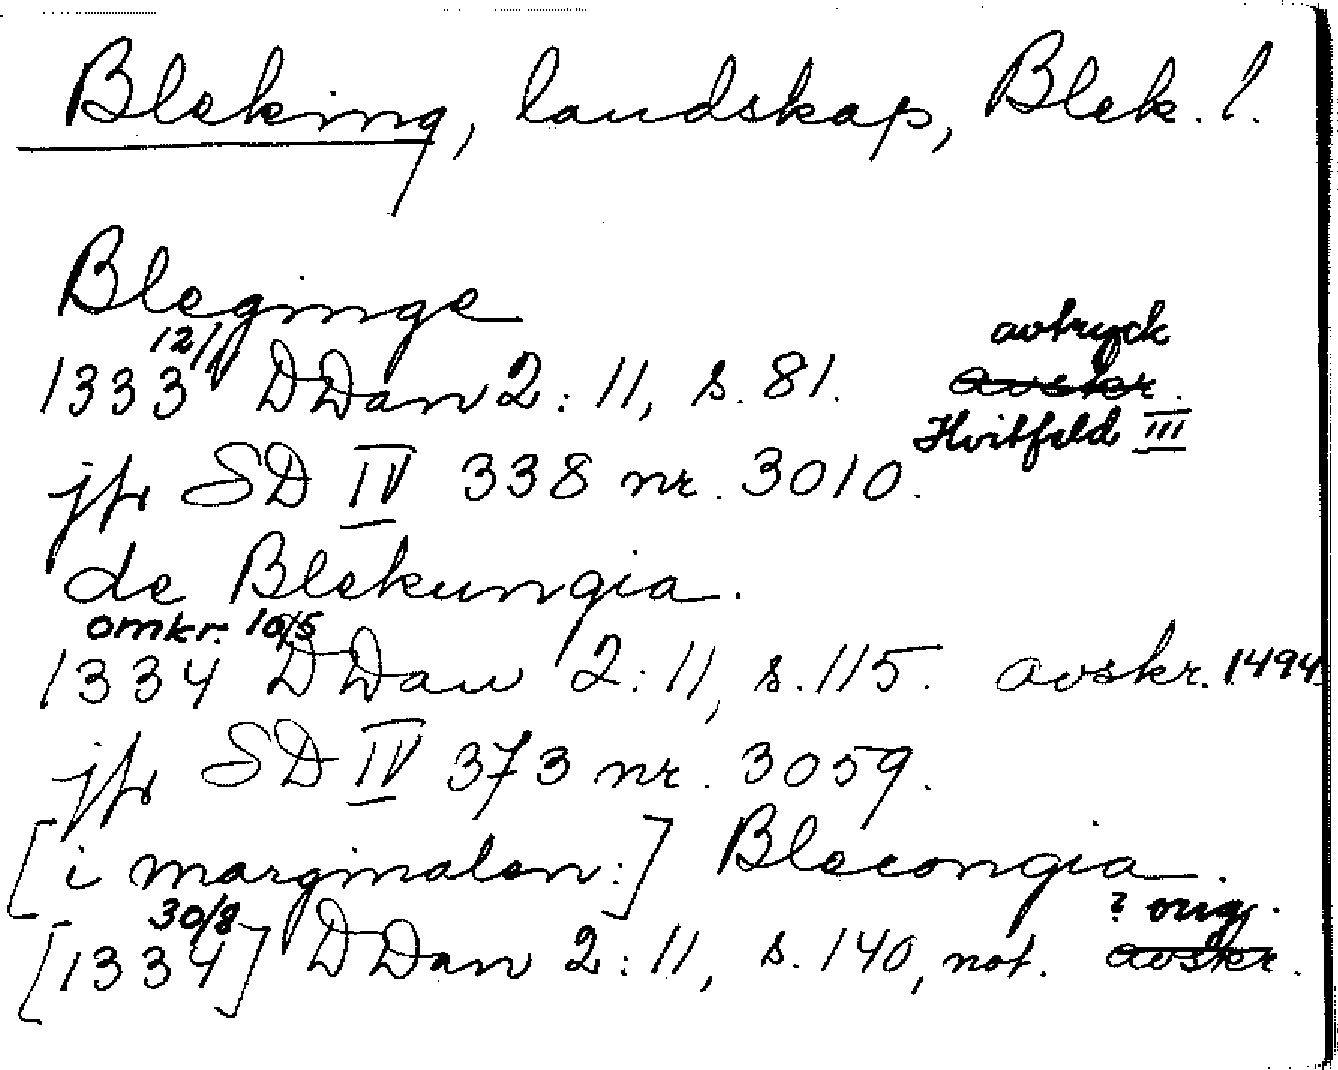 Bleking, landskap, Blek. l.
Bleginge
12/1 avtryck
1333 DDan 2:11, s. 81. avskr.
Hvitfeld III
jfr SD IV 338 nr. 3010.
de Blekungia.
omkr. 10/5
1334 DDan 2:11, s. 115. avskr. 1494
jfr SD IV 373 nr. 3059.
[i marginalen:] Blecongia.
30/8 ? orig.
[1334] DDan 2:11, s. 140, not. avskr.